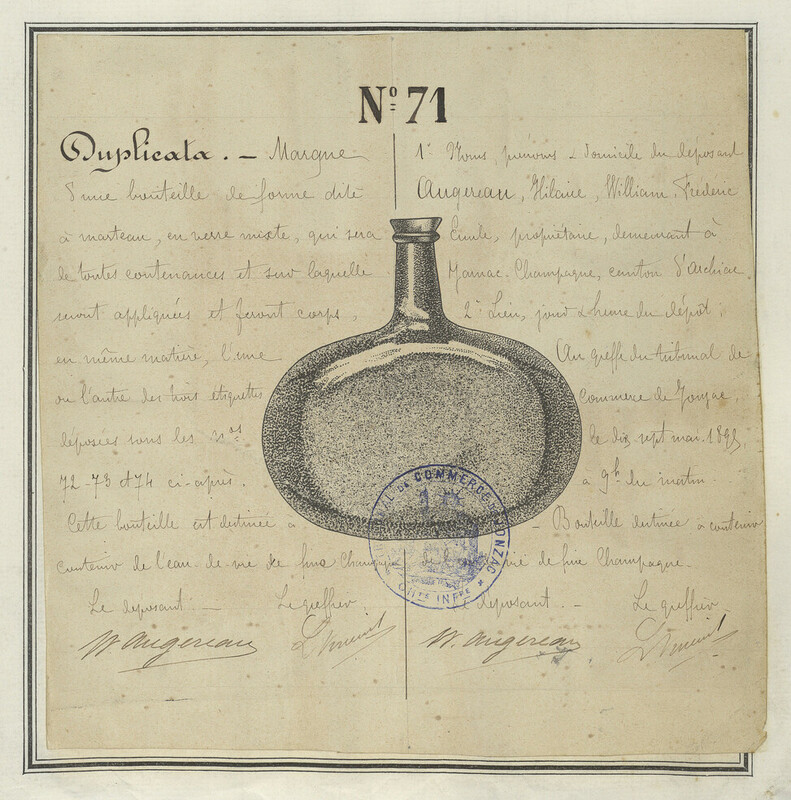 Nº 71
Duplicata. — Marque
d'une bouteille de forme dite
à marteau, en verre mixte, qui sera
de toutes contenances et sur laquelle
seront appliquées et feront corps,
en même matière, l'une
ou l'autre des trois étiquettes
déposées sous les nos
72-73 et 74 ci-après.
Cette bouteille est destinée à
contenir de l'eau-de-vie de fine Champagne
Le deposant. — Le greffier
W Augereau
1º Noms, prénoms & domicile du déposant
Augereau, Hilaire, William, Frédéric
Emile, propriétaire, demeurant à
Jarnac-Champagne, canton d'Archiac
2º Lieu, jour & heure du dépôt :
Au greffe du tribunal de
Commerce de Jonzac,
le dix sept mai 189
à 9h du matin.
— Bouteille destinée à contenir
de l' vie de fine Champagne.
deposant. — Le greffier
W. Augereau
TRIBUNAL DE COMMERCE DE JONZAC
CHTE INFRE